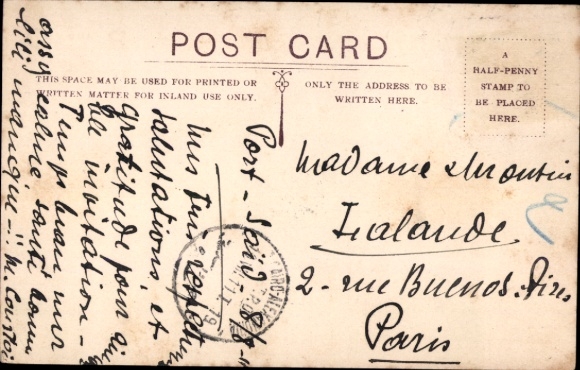 POST CARD
THIS SPACE MAY BE USED FOR PRINTED OR
WRITTEN MATTER FOR INLAND USE ONLY.
ONLY THE ADDRESS TO BE
WRITTEN HERE.
A
HALF-PENNY
STAMP TO
BE PLACED
HERE.
Port-Saïd-
Mes
salutations, et
gratitude pour
invitation-
Temps beau mer
assez calme santé bonne
Madame
Lalande
2 - rue Buenos-Aires
Paris